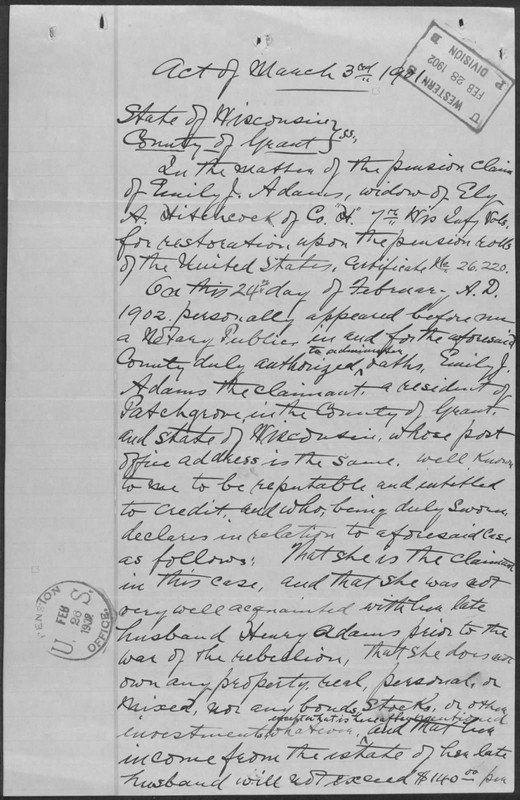 Act of March 3rd 1901
WESTERN DIVISION
FEB 28 1902
State of Wisconsin } ss,
County of Grant
In the matter of the pension claim
of Emily J. Adams, widow of Ely
A. Hitchcock of Co. "H" 7th Wis Inf. Vols.
for restoration upon the pension rolls
of the United States, Certificate No. 26,220.
On this 24th day of Februar- A.D.
1902. personally appeared before me
a Notary Public, in and for the aforesaid
County duly authorized to administer oaths, Emily J.
Adams the claimant, a resident of
Patchgrove, in the County of Grant,
and state of Wisconsin, whose post
office address is the same. well known
to me to be reputable and entitled
to credit, and who, being duly sworn,
declares in relation to aforesaid case
as follows: That she is the claimant
in this case, and that she was not
very well acquainted with her late
husband Henry Adams prior to the
war of the rebellion, that she does not
own any property, real, personal, or
mixed, nor any bonds, Stocks, or other
investments whatever, except what is hereafter mentioned and that her
income from the estate of her late
husband will not exceed $140.00 per
U.S. PENSION OFFICE.
FEB 26 1902